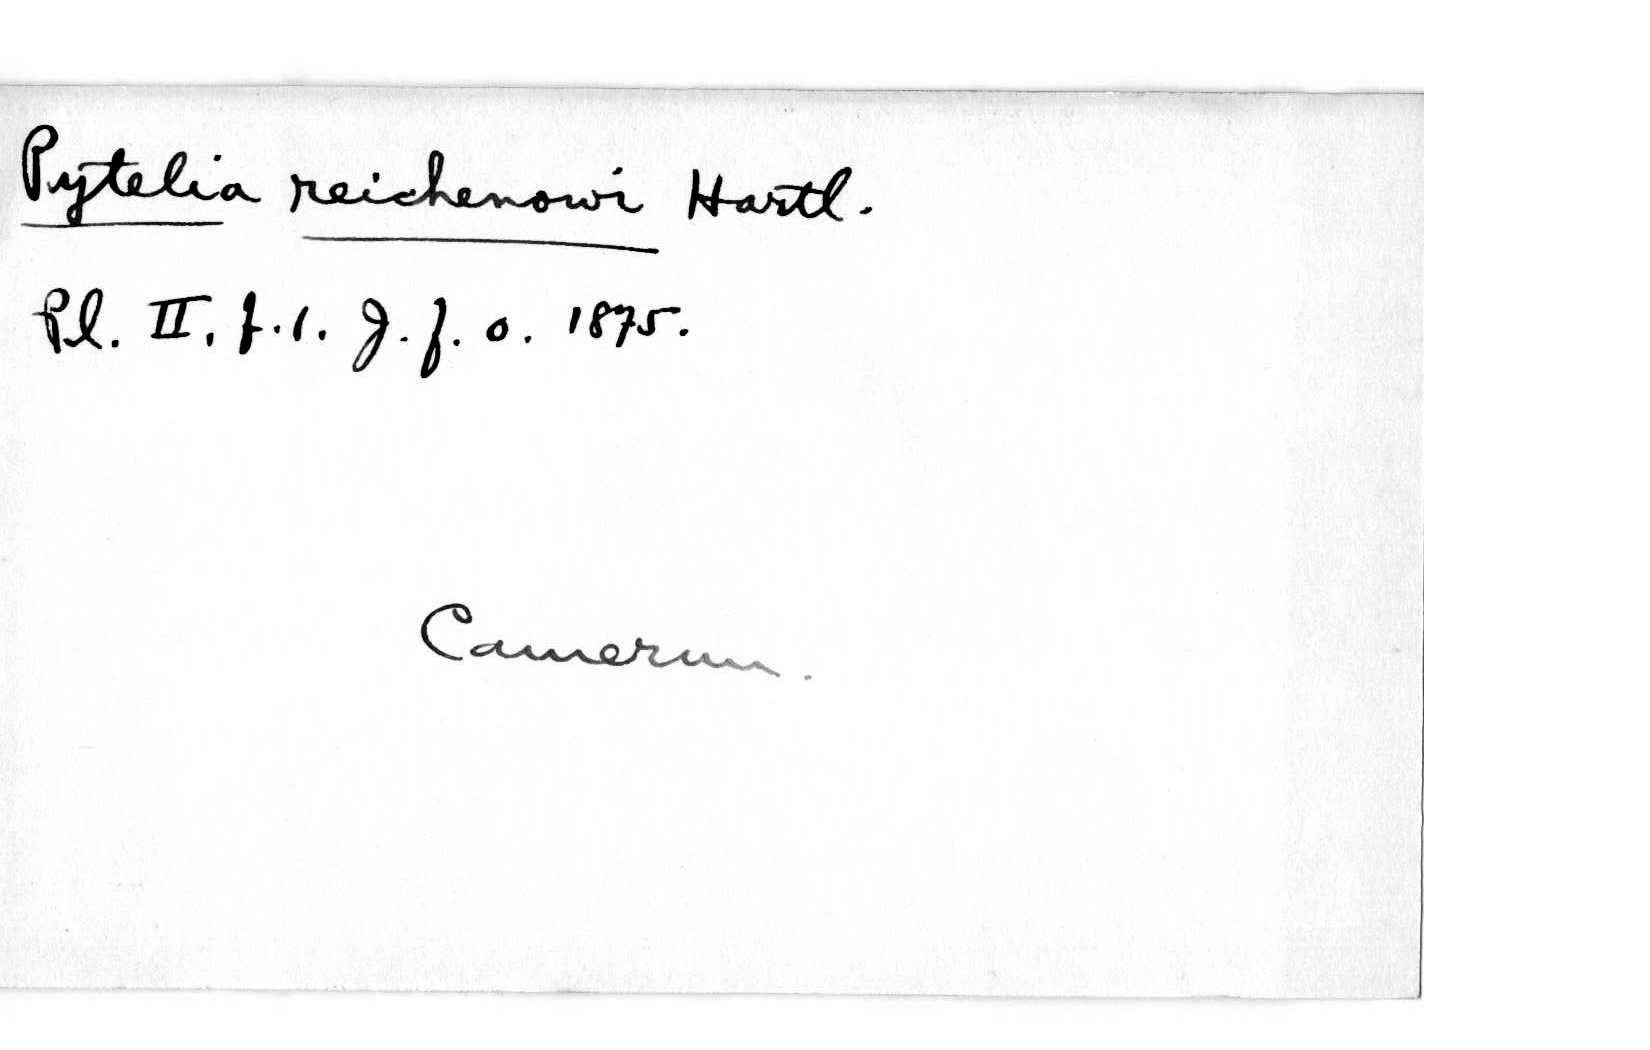 Pytelia reichenowi Hartl.
Pl. II. f.1. J. f. o. 1875.
Camerun.